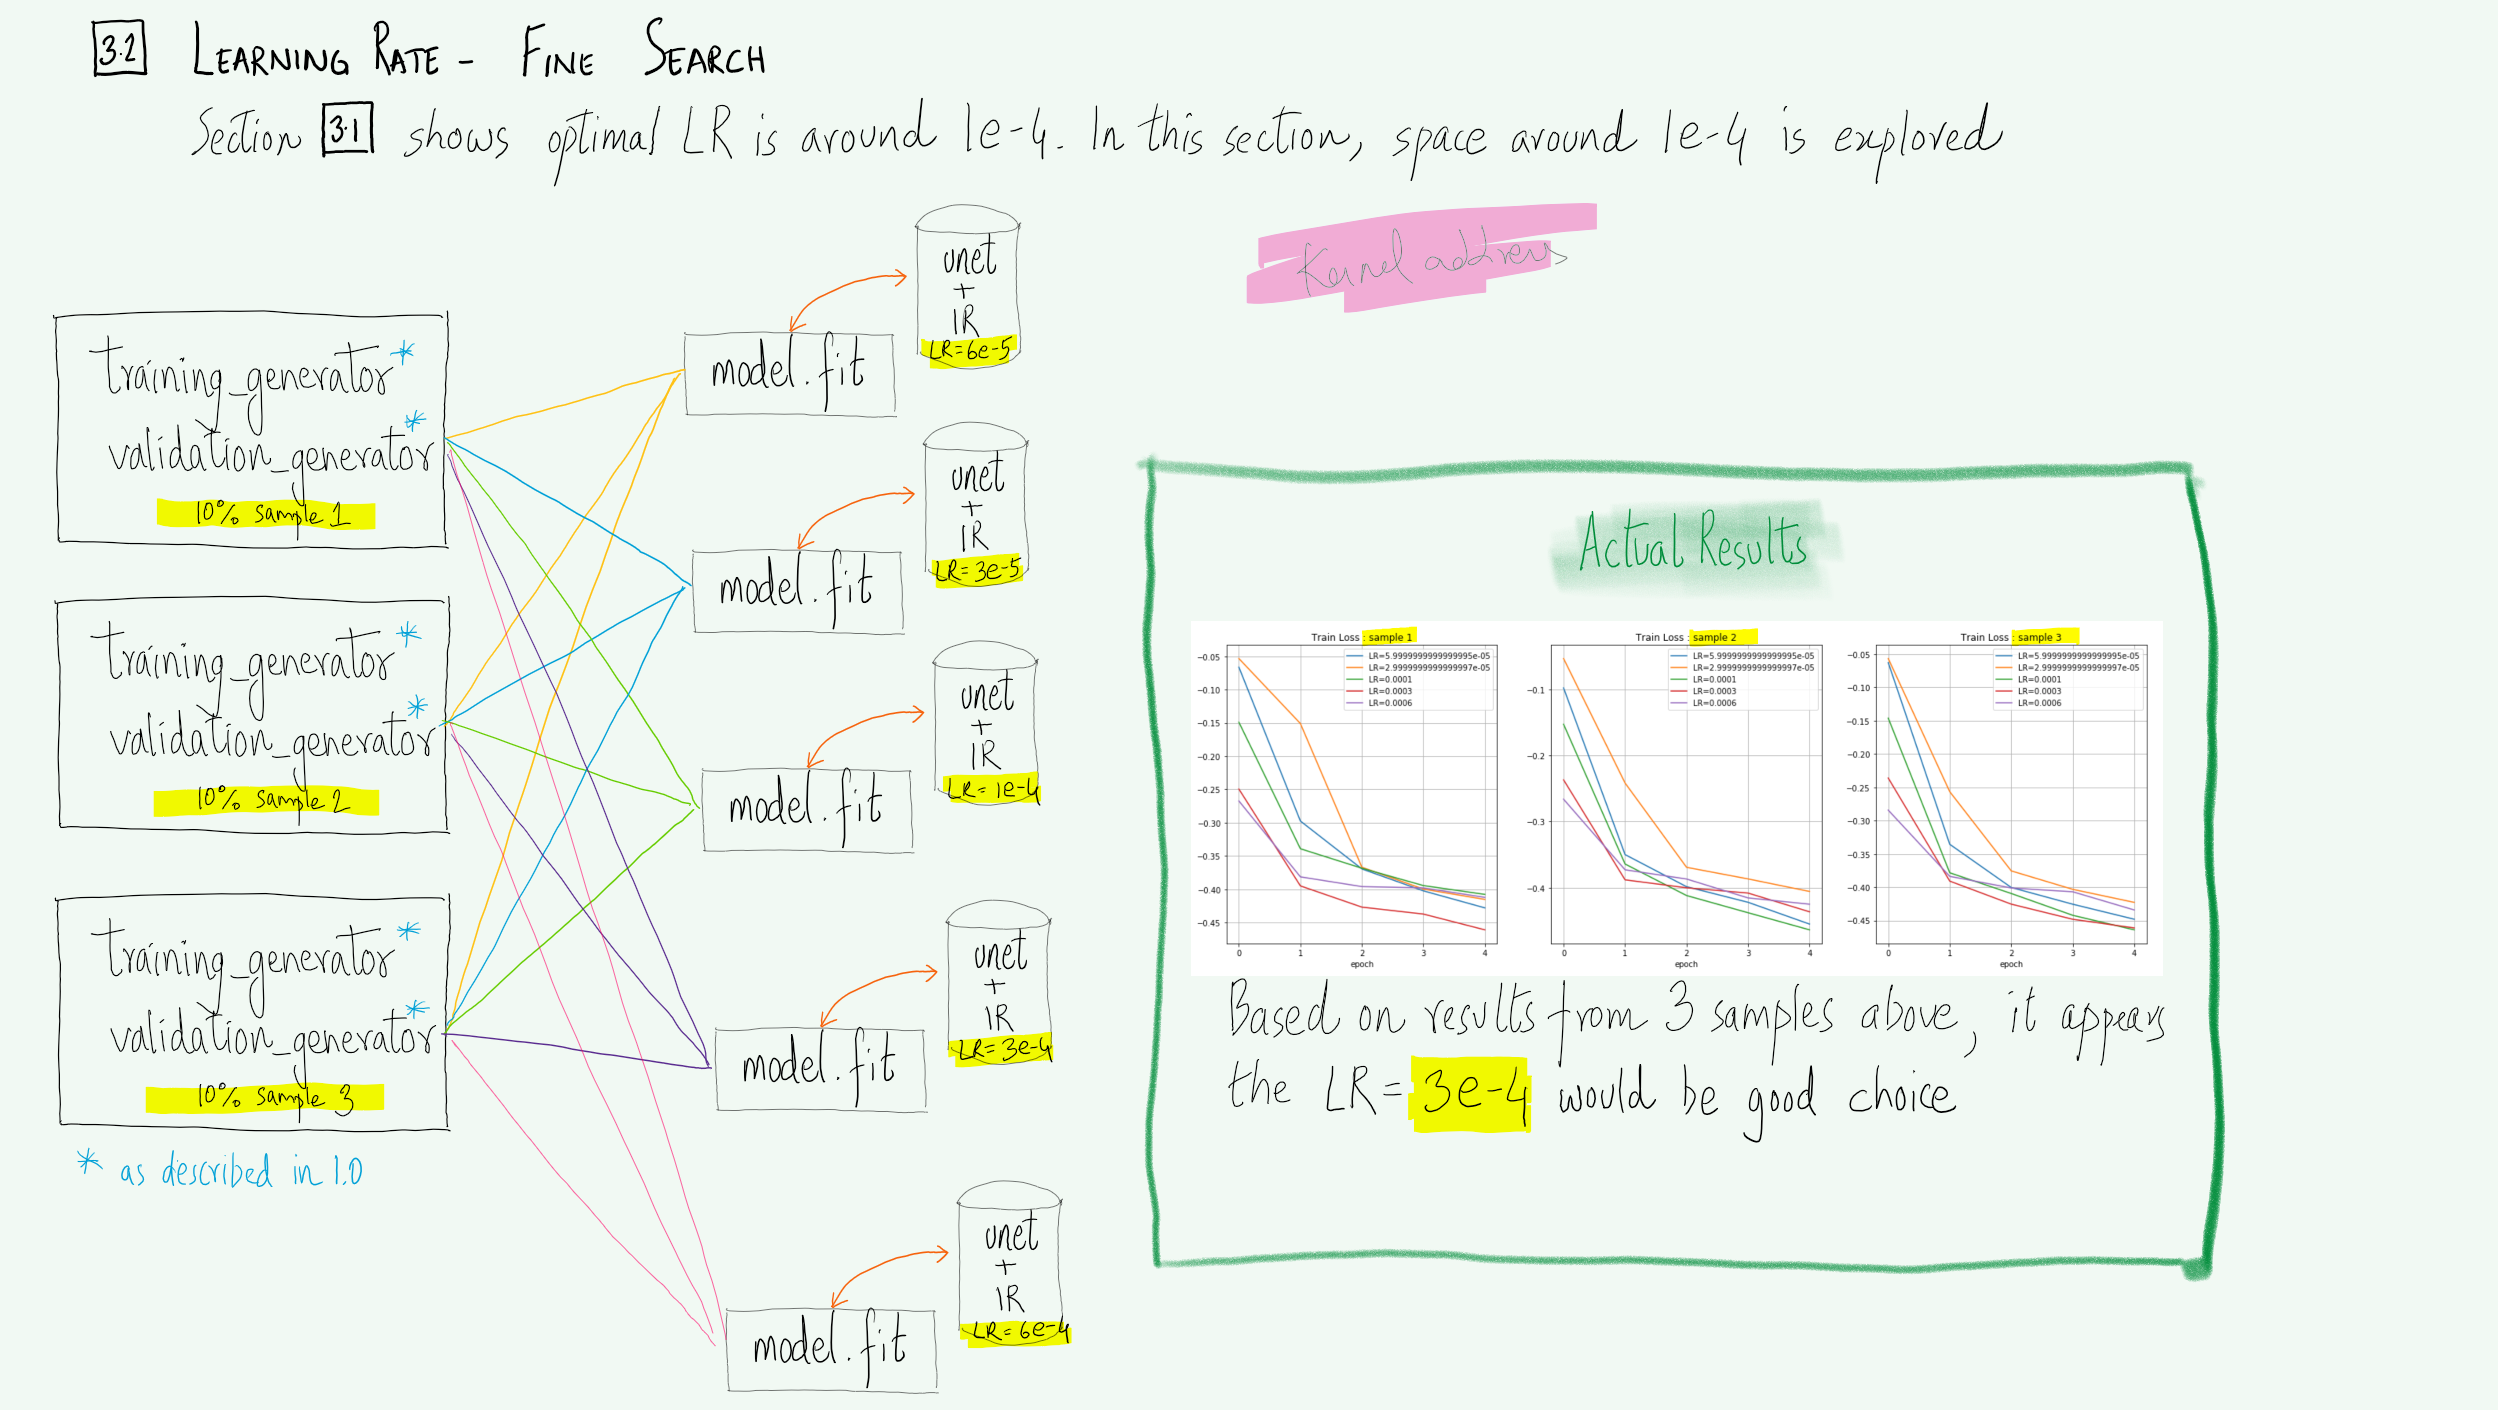 3.2 LEARNING RATE - FINE SEARCH
Section 3.1 shows optimal LR is around 1e-4. In this section, space around 1e-4 is explored
Kernel address
training_generator*
validation_generator*
10% sample 1
training_generator*
validation_generator*
10% sample 2
training_generator*
validation_generator*
10% sample 3
* as described in 1.0
model.fit
unet
+
IR
LR=6e-5
model.fit
unet
+
IR
LR=3e-5
model.fit
unet
+
IR
LR=1e-4
model.fit
unet
+
IR
LR=3e-4
model.fit
unet
+
IR
LR=6e-4
Actual Results
Train Loss : sample 1
LR=5.9999999999999995e-05
LR=2.9999999999999997e-05
LR=0.0001
LR=0.0003
LR=0.0006
-0.05
-0.10
-0.15
-0.20
-0.25
-0.30
-0.35
-0.40
-0.45
0 1 2 3 4
epoch
Train Loss : sample 2
LR=5.9999999999999995e-05
LR=2.9999999999999997e-05
LR=0.0001
LR=0.0003
LR=0.0006
-0.1
-0.2
-0.3
-0.4
0 1 2 3 4
epoch
Train Loss : sample 3
LR=5.9999999999999995e-05
LR=2.9999999999999997e-05
LR=0.0001
LR=0.0003
LR=0.0006
-0.05
-0.10
-0.15
-0.20
-0.25
-0.30
-0.35
-0.40
-0.45
0 1 2 3 4
epoch
Based on results from 3 samples above, it appears
the LR= 3e-4 would be good choice